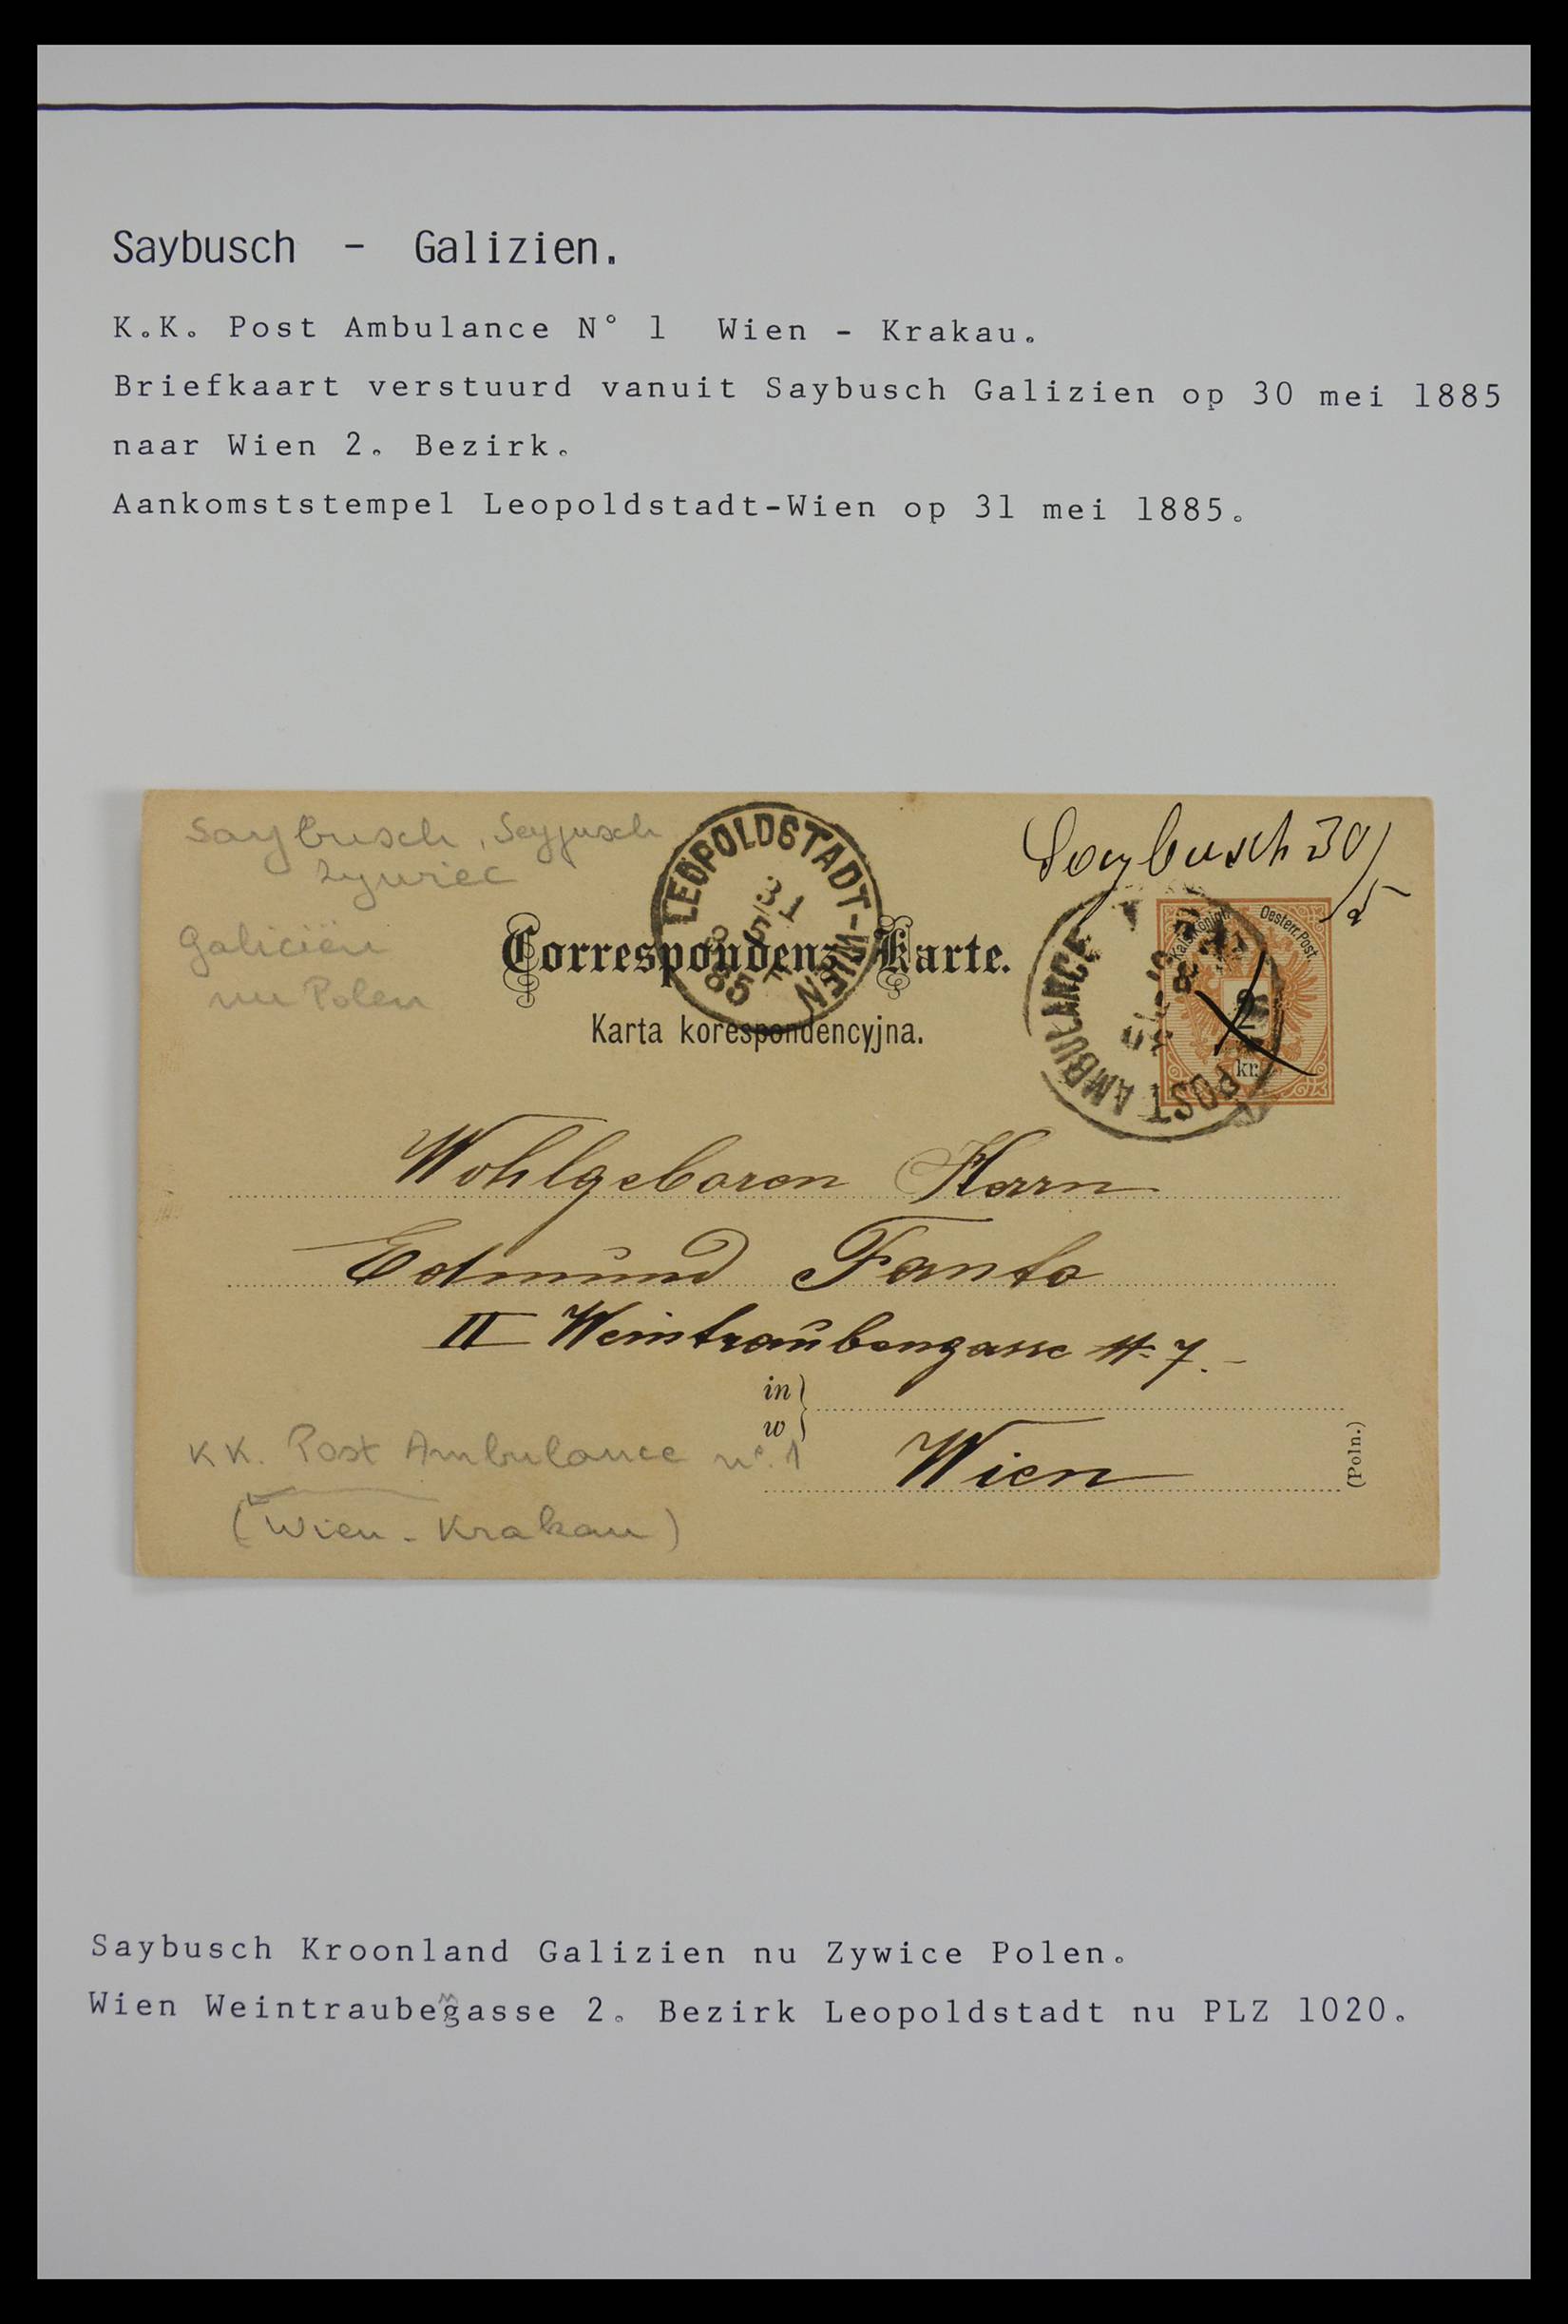 Saybusch - Galizien.
K.K. Post Ambulance N° 1 Wien - Krakau.
Briefkaart verstuurd vanuit Saybusch Galizien op 30 mei 1885
naar Wien 2. Bezirk.
Aankomststempel Leopoldstadt-Wien op 31 mei 1885.
Saybusch, Seyjusch
Zywiec
Galiciën
nu Polen
LEOPOLDSTADT-WIEN
31
5
85
Saybusch 30/5
Kais. Königl. Oesterr. Post
2
kr.
POST AMBULANCE
Correspondenz-Karte.
Karta korespondencyjna.
Wohlgeboren Herrn
Edmund Fanto
II Weintraubengasse N: 7.-
in
w
Wien
(Poln.)
KK. Post Ambulance n°. 1
(Wien - Krakau)
Saybusch Kroonland Galizien nu Zywice Polen.
Wien Weintraubengasse 2. Bezirk Leopoldstadt nu PLZ 1020.